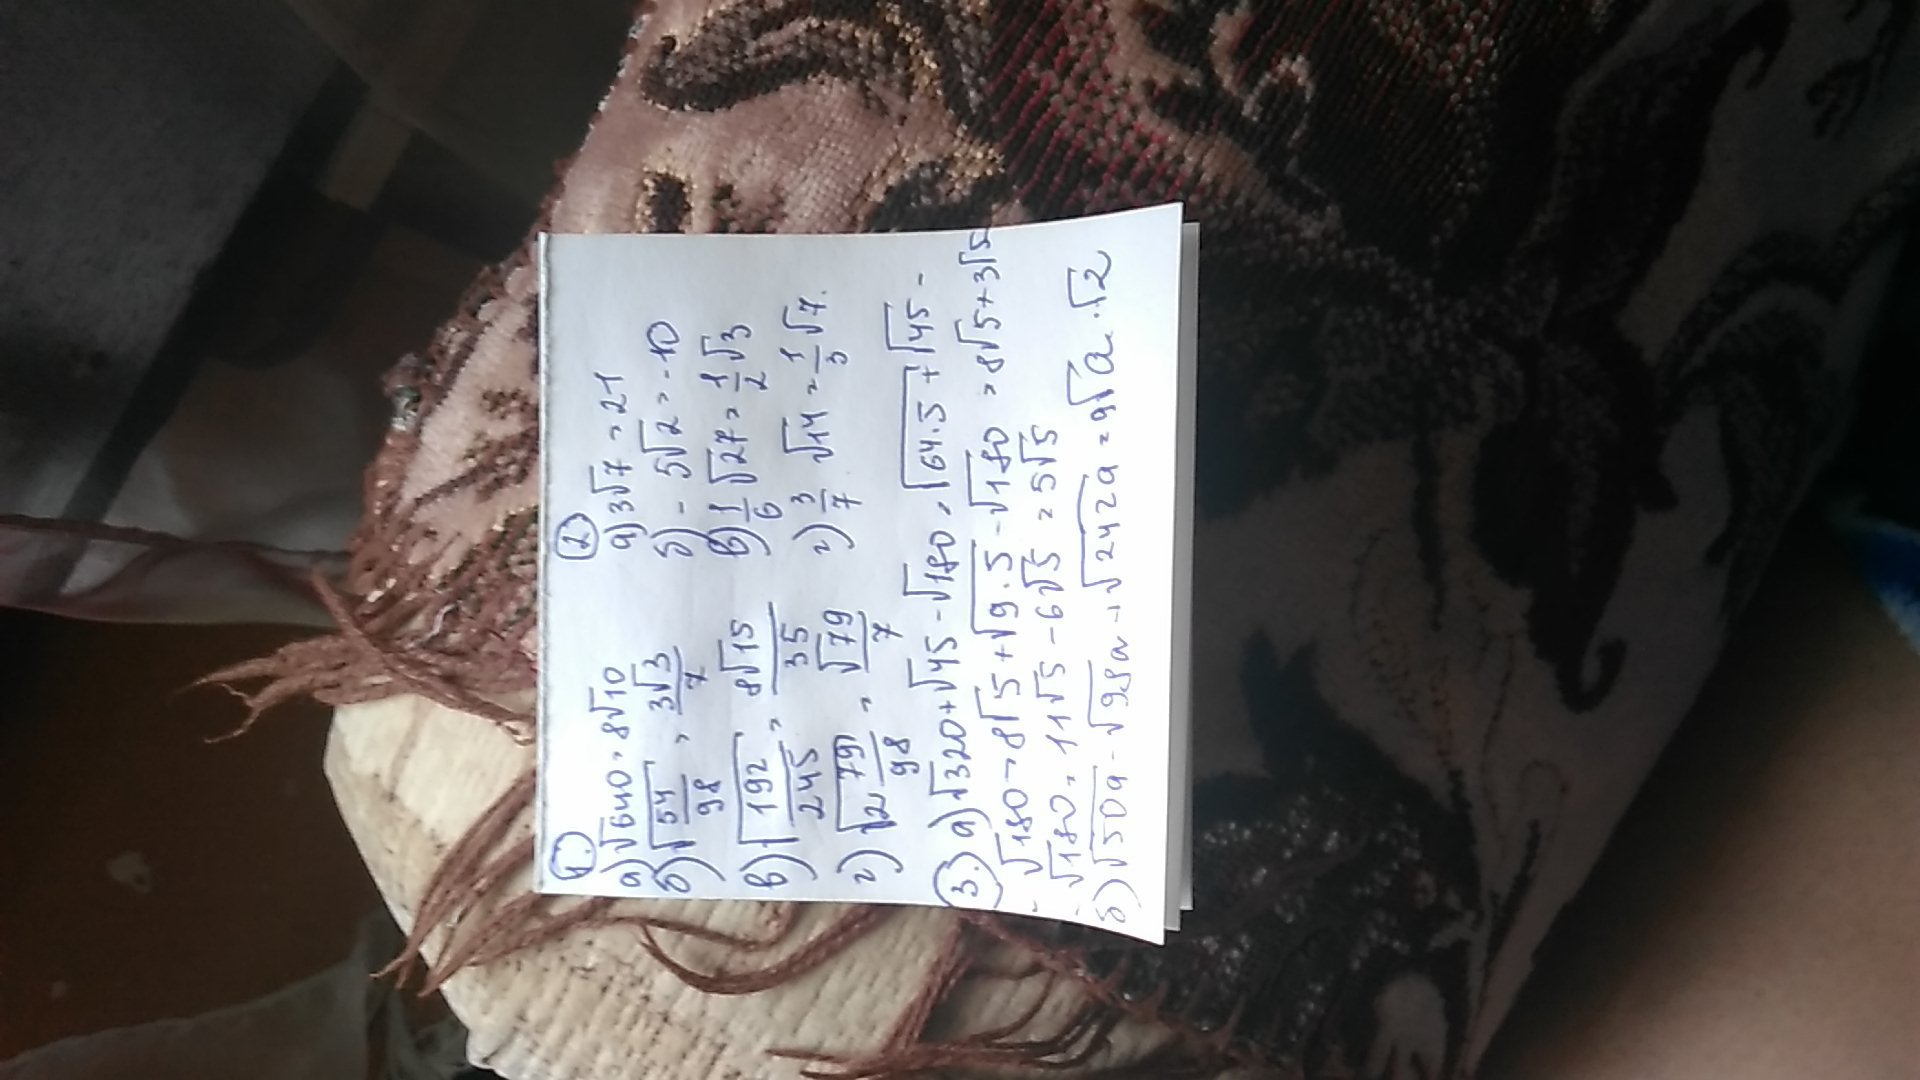 1.
а) √640 = 8√10
б) √54/98 = 3√3/7
в) √192/245 = 8√15/35
г) √2 79/98 = √79/7
2.
а) 3√7 = 21
б) - 5√2 = -10
в) 1/6 √27 = 1/2 √3
г) 3/7 √14 = 1/3 √7.
3. а) √320 + √45 - √180 = √64·5 + √45 -
- √180 = 8√5 + √9·5 - √180 = 8√5 + 3√5
- √180 = 11√5 - 6√5 = 5√5
б) √50a - √98a + √242a = 9√a · √2